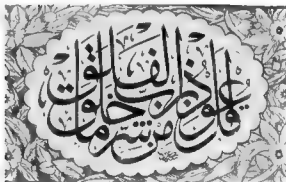 قل أعوذ برب الفلق
من شر ما خلق